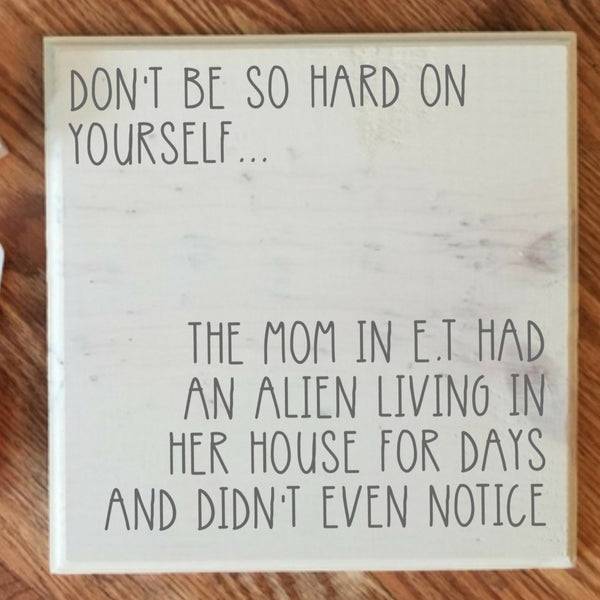 DON'T BE SO HARD ON
YOURSELF...
THE MOM IN E.T HAD
AN ALIEN LIVING IN
HER HOUSE FOR DAYS
AND DIDN'T EVEN NOTICE